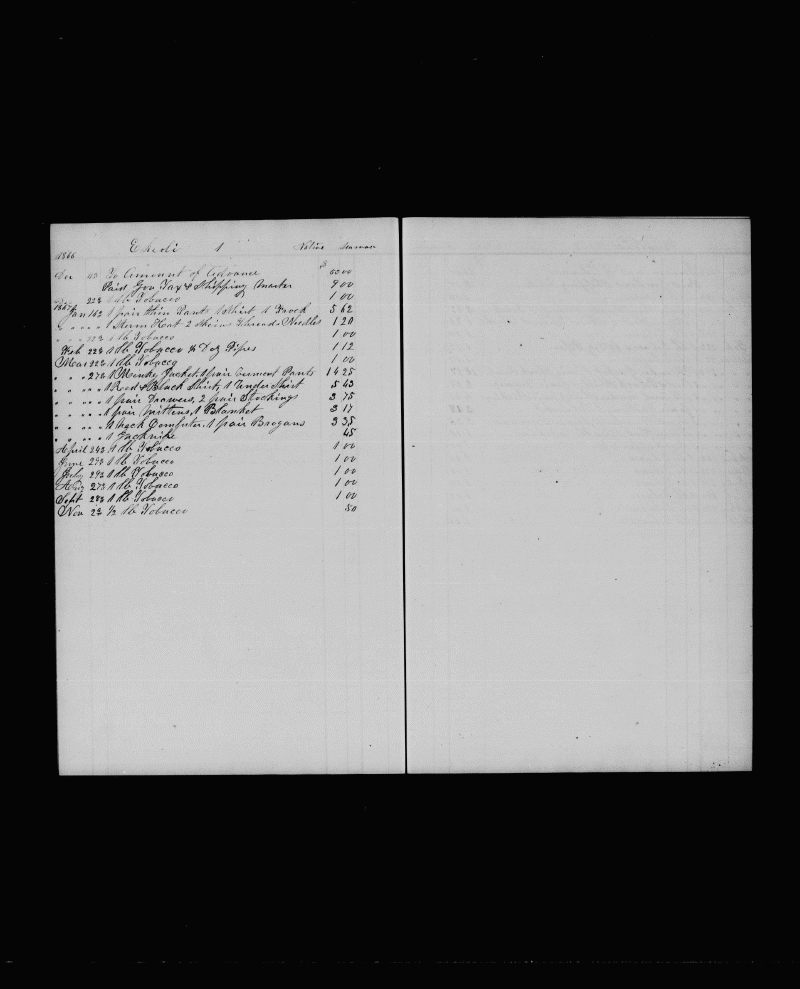 1866 Ehedi 1 Native Seaman
Dec To Amount of Advance $ 00
Paid Gov Tax & Shipping Master 9 00
" 22d 1 lb Tobacco 1 00
1867 Jan 16d 1 pair thin Pants 1 Shirt 1 Frock 5 62
" " " " 1 Storm Hat 2 Skeins Thread & Needles 1 20
" " 22d 1 lb Tobacco 1 00
Feb 22d 1 lb Tobacco & Doz Pipes 1 12
Mar 22d 1 lb Tobacco 1 00
" " 27d 1 Monkey Jacket, 1 pair Pants 14 25
" " " " 1 Red & Black Shirt, 1 Under Shirt 5 43
" " " " 1 pair Drawers, 2 pair Stockings 3 75
" " " " 1 pair Mittens, 1 Blanket 3 17
" " " " 1 Neck Comforter, 1 pair Brogans 3 35
" " " " 1 Jacknife 45
April 24d 1 lb Tobacco 1 00
June 29d 1 lb Tobacco 1 00
July 29d 1 lb Tobacco 1 00
Aug 27d 1 lb Tobacco 1 00
Sept 28d 1 lb Tobacco 1 00
Nov 2d ½ lb Tobacco 50